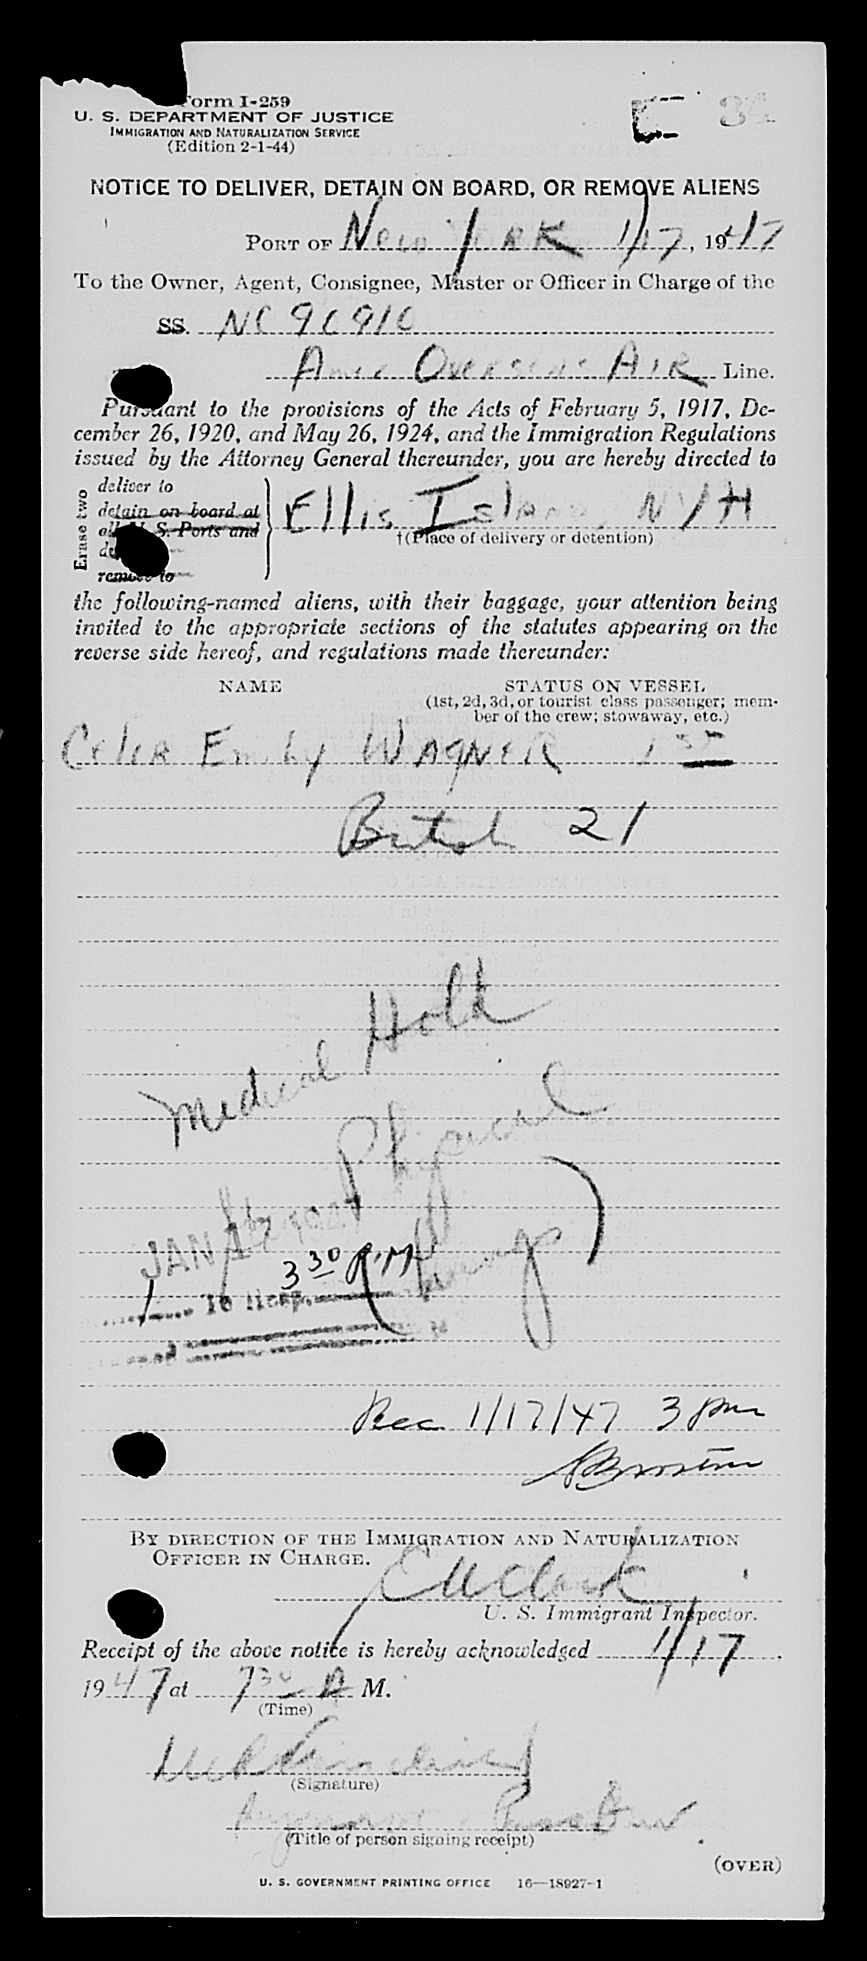 Form I-259
U. S. DEPARTMENT OF JUSTICE
IMMIGRATION AND NATURALIZATION SERVICE
(Edition 2-1-44)
NOTICE TO DELIVER, DETAIN ON BOARD, OR REMOVE ALIENS
PORT OF New York 1/17, 1947
To the Owner, Agent, Consignee, Master or Officer in Charge of the
SS. NC 90910
Amer Overseas Air Line.
Pursuant to the provisions of the Acts of February 5, 1917, De-
cember 26, 1920, and May 26, 1924, and the Immigration Regulations
issued by the Attorney General thereunder, you are hereby directed to
Erase two
deliver to
detain on board at
all U. S. Ports and
remove to
Ellis Island, NYH
†(Place of delivery or detention)
the following-named aliens, with their baggage, your attention being
invited to the appropriate sections of the statutes appearing on the
reverse side hereof, and regulations made thereunder:
NAME STATUS ON VESSEL
(1st, 2d, 3d, or tourist class passenger; mem-
ber of the crew; stowaway, etc.)
Celia Emily WAGNER 1st
British 21
Medical Hold
Physical
JAN 17 1947
3 30 P.M.
To Hosp.
Rec 1/17/47 3 pm
BY DIRECTION OF THE IMMIGRATION AND NATURALIZATION
OFFICER IN CHARGE.
Clark
U. S. Immigrant Inspector.
Receipt of the above notice is hereby acknowledged 1/17
1947 at 7 30 A M.
(Time)
(Signature)
(Title of person signing receipt)
(OVER)
U. S. GOVERNMENT PRINTING OFFICE 16—18927-1